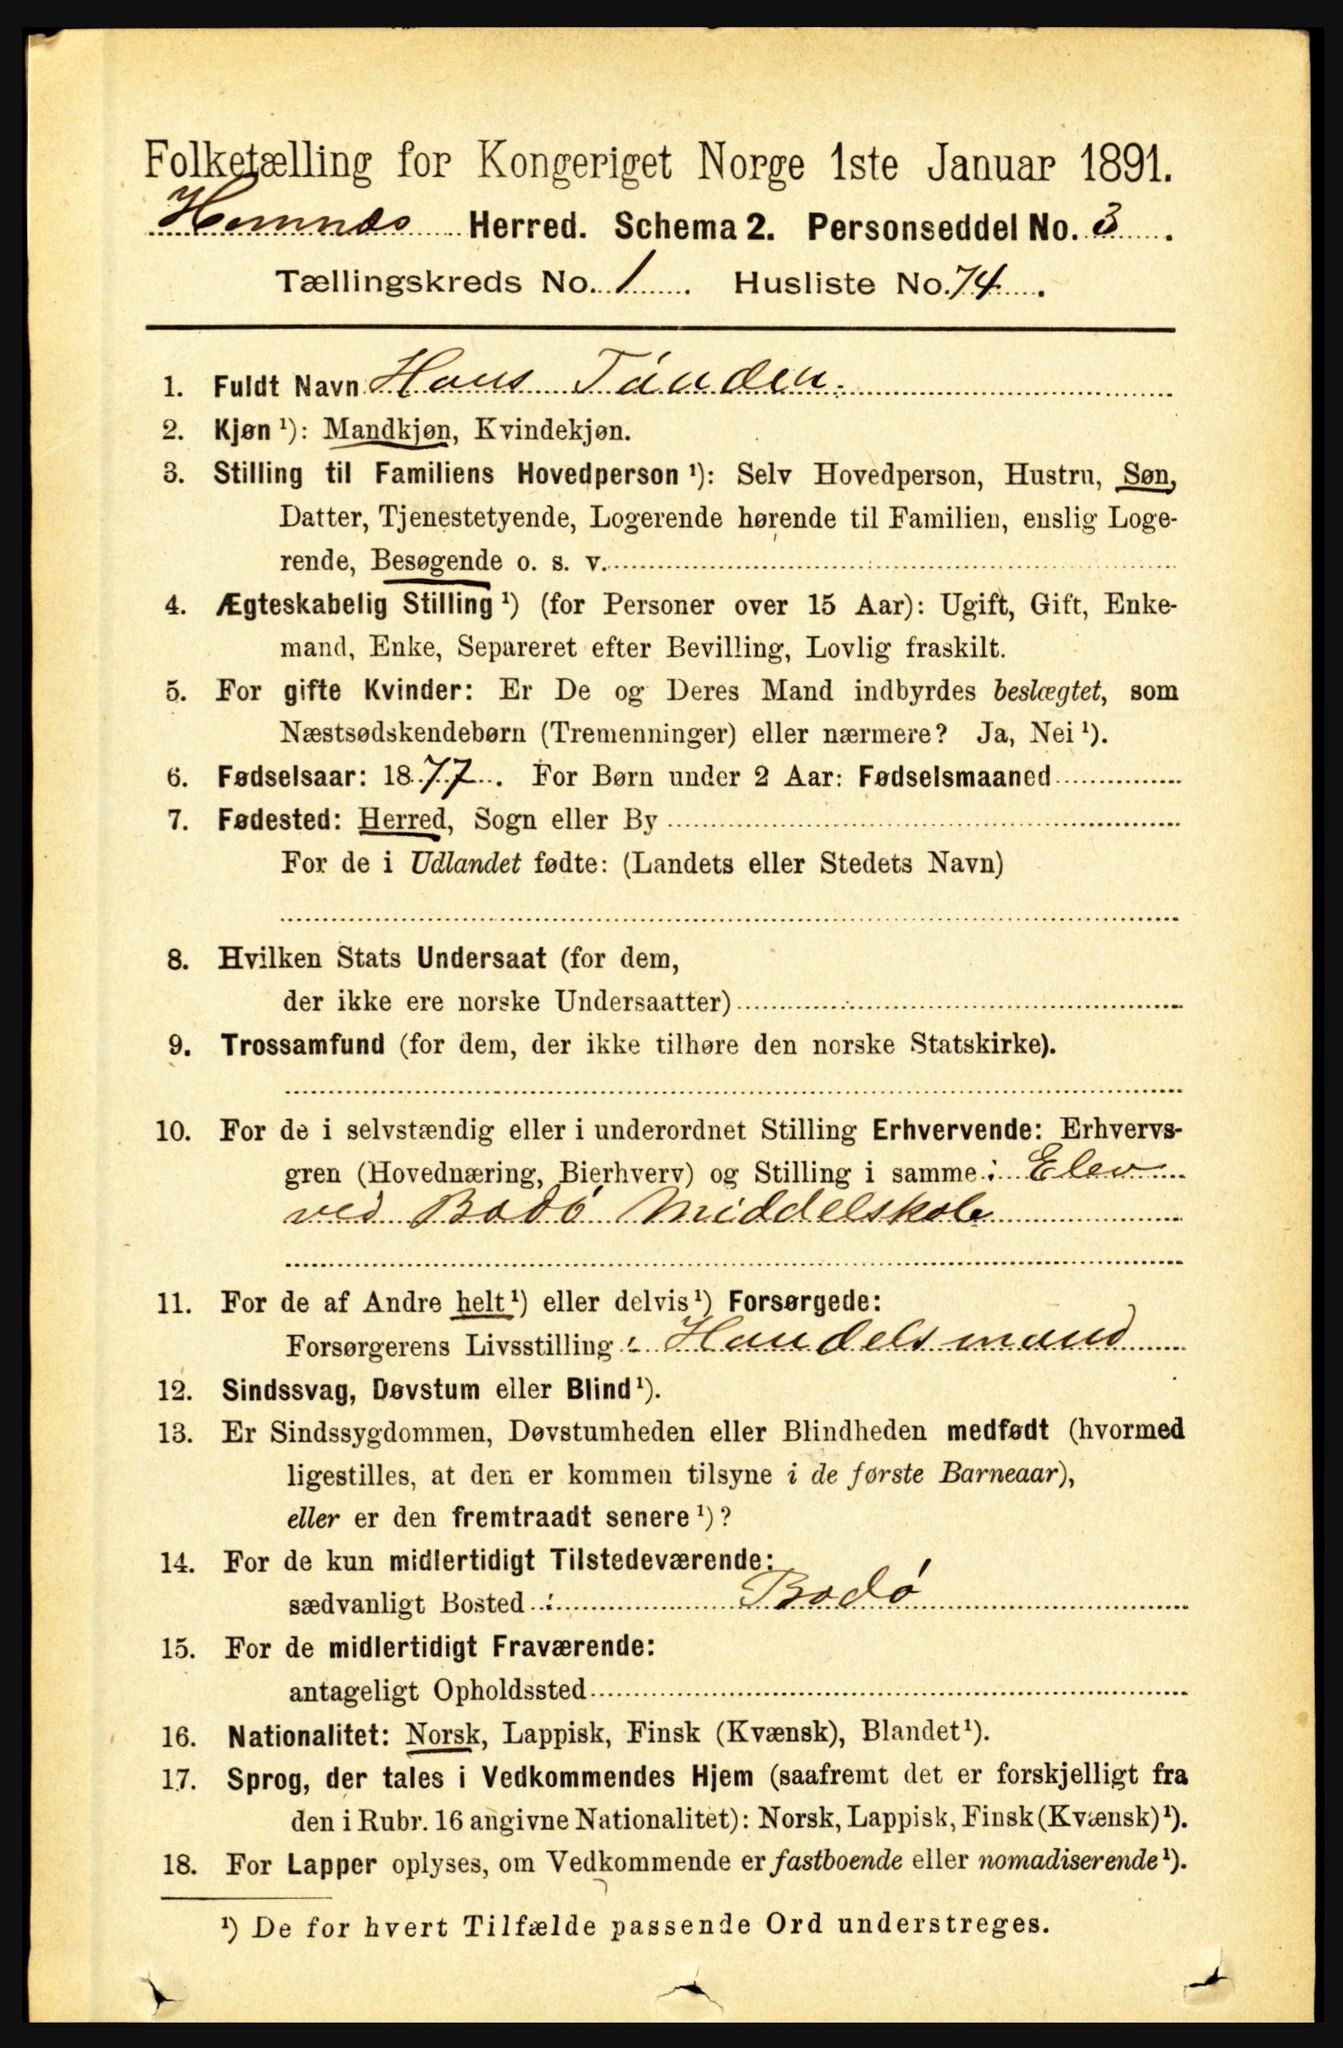 Folketælling for Kongeriget Norge 1ste Januar 1891.
Hemnæs Herred. Schema 2. Personseddel No. 3.
Tællingskreds No. 1. Husliste No. 74.
1. Fuldt Navn Hans Tønder.
2. Kjøn ¹): Mandkjøn, Kvindekjøn.
3. Stilling til Familiens Hovedperson ¹): Selv Hovedperson, Hustru, Søn,
Datter, Tjenestetyende, Logerende hørende til Familien, enslig Loge-
rende, Besøgende o. s. v.
4. Ægteskabelig Stilling ¹) (for Personer over 15 Aar): Ugift, Gift, Enke-
mand, Enke, Separeret efter Bevilling, Lovlig fraskilt.
5. For gifte Kvinder: Er De og Deres Mand indbyrdes beslægtet, som
Næstsødskendebørn (Tremenninger) eller nærmere? Ja, Nei ¹).
6. Fødselsaar: 1877. For Børn under 2 Aar: Fødselsmaaned
7. Fødested: Herred, Sogn eller By
For de i Udlandet fødte: (Landets eller Stedets Navn)
8. Hvilken Stats Undersaat (for dem,
der ikke ere norske Undersaatter)
9. Trossamfund (for dem, der ikke tilhøre den norske Statskirke).
10. For de i selvstændig eller i underordnet Stilling Erhvervende: Erhvervs-
gren (Hovednæring, Bierhverv) og Stilling i samme: Elev
ved Bodó Middelskole
11. For de af Andre helt ¹) eller delvis ¹) Forsørgede:
Forsørgerens Livsstilling: Handelsmand
12. Sindssvag, Døvstum eller Blind ¹).
13. Er Sindssygdommen, Døvstumheden eller Blindheden medfødt (hvormed
ligestilles, at den er kommen tilsyne i de første Barneaar),
eller er den fremtraadt senere ¹)?
14. For de kun midlertidigt Tilstedeværende:
sædvanligt Bosted: Bodó
15. For de midlertidigt Fraværende:
antageligt Opholdssted
16. Nationalitet: Norsk, Lappisk, Finsk (Kvænsk), Blandet ¹).
17. Sprog, der tales i Vedkommendes Hjem (saafremt det er forskjelligt fra
den i Rubr. 16 angivne Nationalitet): Norsk, Lappisk, Finsk (Kvænsk) ¹).
18. For Lapper oplyses, om Vedkommende er fastboende eller nomadiserende ¹).
¹) De for hvert Tilfælde passende Ord understreges.